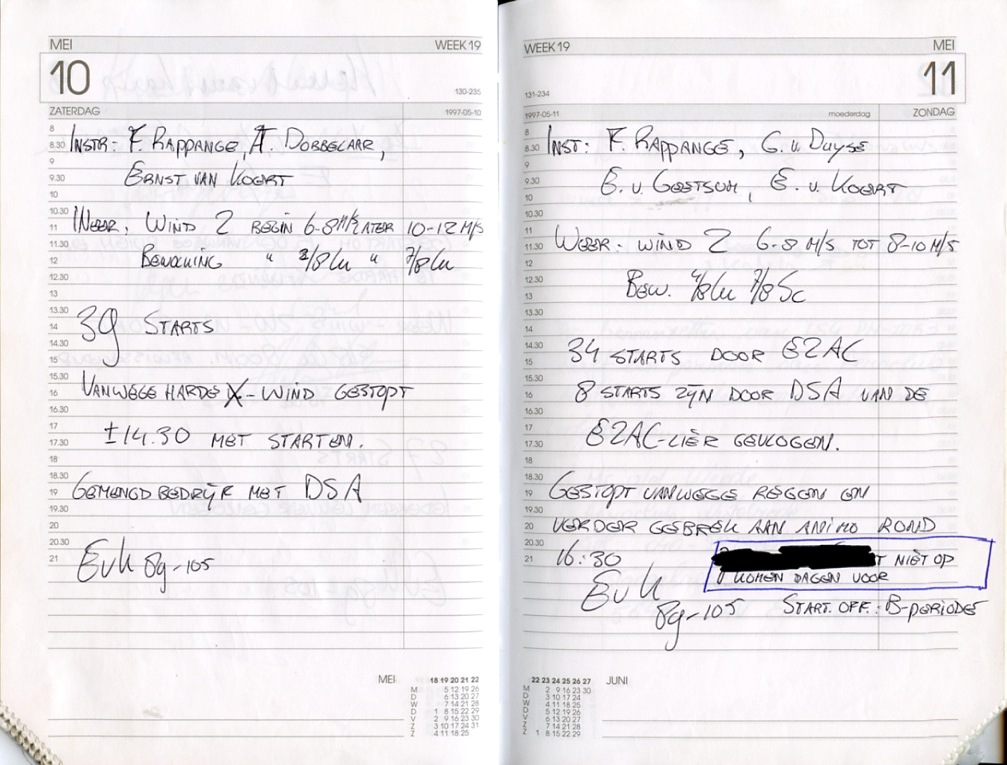 MEI
WEEK 19
10
130-235
ZATERDAG
1997-05-10
8
8.30 INSTR: F. RAPPANGE, A. DOBBELAAR,
9
9.30 ERNST VAN KOERT
10
10.30
11 WEER. WIND 2 BEGIN 6-8 M/S LATER 10-12 M/S
11.30
12 BEWOLKING " 2/8 Cu " 7/8 Cu
12.30
13
13.30
14 39 STARTS
14.30
15
15.30
16 VANWEGE HARDE X-WIND GESTOPT
16.30
17
17.30 ±14.30 MET STARTEN.
18
18.30
19 GEMENGD BEDRIJF MET DSA
19.30
20
20.30
21 EvK Pg-105
MEI
18 19 20 21 22
M 5 12 19 26
D 6 13 20 27
W 7 14 21 28
D 1 8 15 22 29
V 2 9 16 23 30
Z 3 10 17 24 31
Z 4 11 18 25
WEEK 19
MEI
11
131-234
1997-05-11
moederdag
ZONDAG
8
8.30 INST: F. RAPPANGE, G. v DUYSE
9
9.30 E. v. E. v. KOERT
10
10.30
11
11.30 WEER: WIND 2 6-8 M/S TOT 8-10 M/S
12
12.30 BEW. 4/8 Cu 7/8 Sc
13
13.30
14
14.30 34 STARTS DOOR EZAC
15
15.30
16 8 STARTS ZIJN DOOR DSA VAN DE
16.30
17
17.30 EZAC-LIER GEVLOGEN.
18
18.30
19 GESTOPT VANWEGE REGEN EN
19.30
20 VERDER GEBREK AAN ANIMO ROND
20.30
21 16:30
T NIET OP
KOMEN DAGEN VOOR
EvK
Pg-105 START. OFF.: B-PERIODE
22 23 24 25 26 27
M 2 9 16 23 30
D 3 10 17 24
W 4 11 18 25
D 5 12 19 26
V 6 13 20 27
Z 7 14 21 28
Z 1 8 15 22 29
JUNI